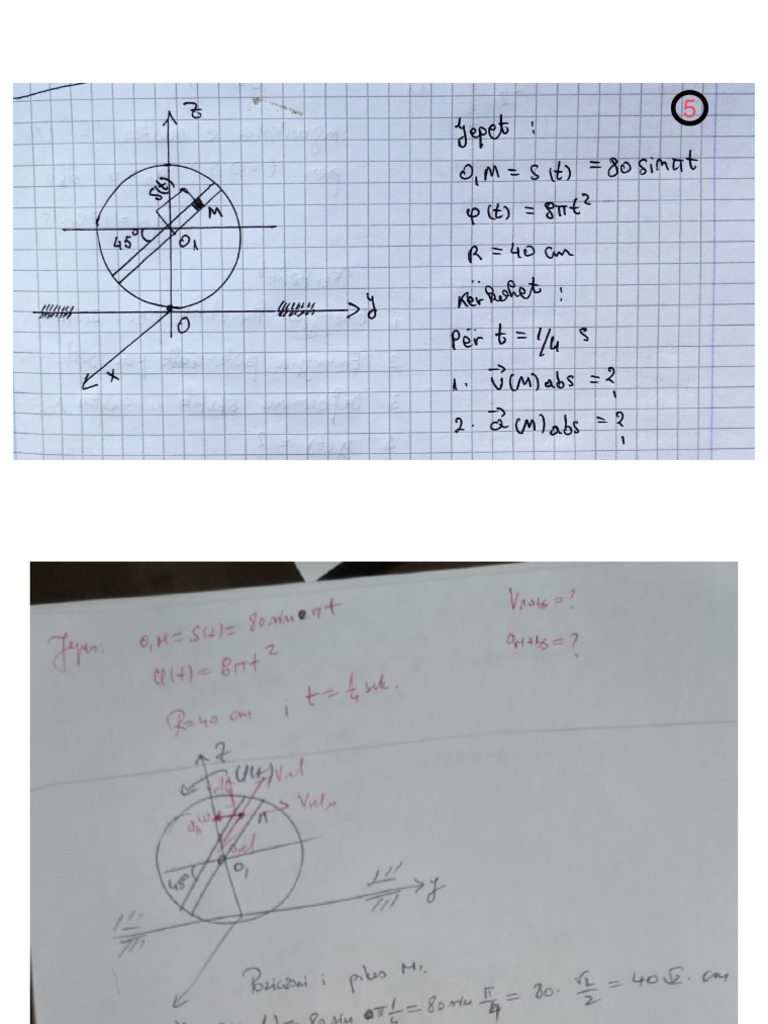 z
5
Jepet :
O₁M = S(t) = 80 sin πt
φ(t) = 8πt²
R = 40 cm
Kërkohet :
Për t = 1/4 s
1. v⃗(M) abs = ?
2. a⃗(M) abs = ?
S(t)
M
45°
O₁
y
O
x
Jepen: O₁M = S(t) = 80 sin πt
φ(t) = 8πt²
R = 40 cm ; t = 1/4 sek.
VMabs = ?
aMabs = ?
z
φ(t) Vrel
M
45°
O₁
y
Pozicioni i pikes M.
80 sin π 1/4 = 80 sin π/4 = 80 · √2/2 = 40√2 cm